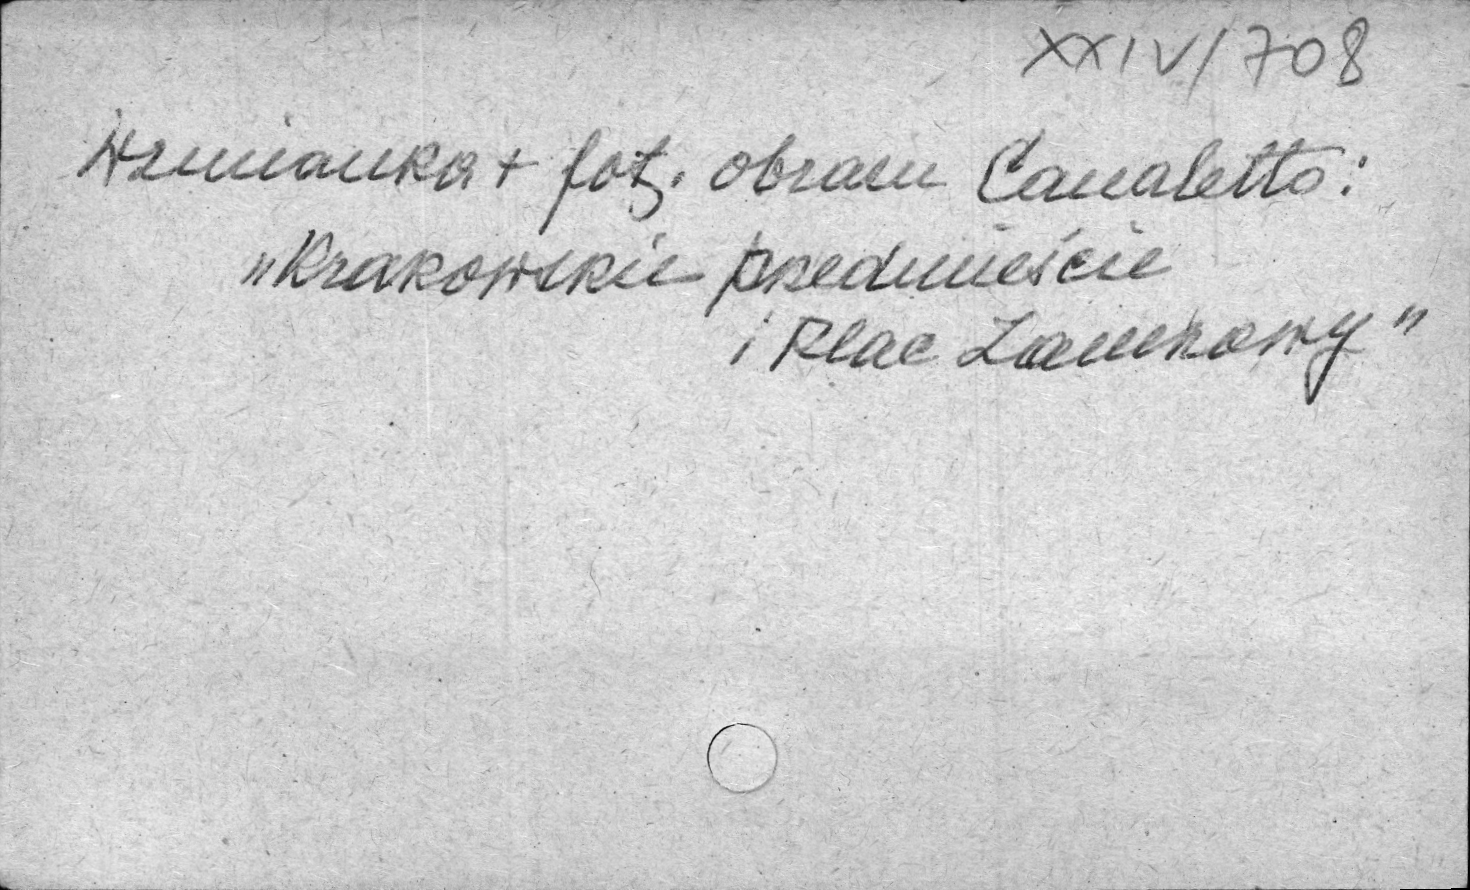 XXIV/708
Wzmianka + fot. obrazu Canaletto:
"Krakowskie przedmieście
i Plac Zamkowy"